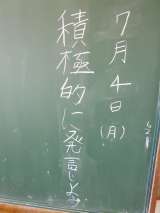 7月4日(月)
積極的に発言しよう